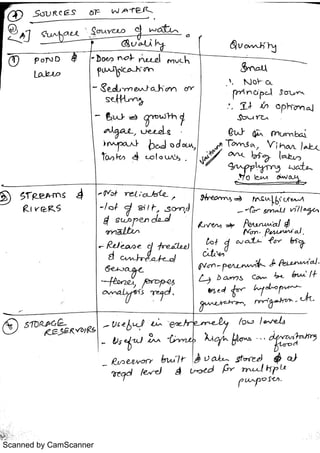 SOURCES OF WATER
A] Surface Sources of water
Quality
Quantity
① POND & Lakes
- Does not need much purification
- Sedimentation or settling
- But → growth of algae, weeds impart bad odour, tastes & colours.
Small
∴ Not a principal source
∴ It is optional source
But in Mumbai Tansa, Vihar lake are big lakes supplying water
② STREAMS & RIVERS
- Not reliable,
- lot of silt, sand & suspended matter
- Release of treated & untreated sewage
- Hence, proper analysis reqd.
Streams → insufficient
- for small villages
Rivers → Perennial & Non-Perennial.
Lot of water for big cities
Non-perennial & Perennial.
↳ Dams can be built
used for hydropower generation, irrigation, etc.
STORAGE RESERVOIRS
- Useful in extremely low levels
- Useful in times high flows ... devastating flood
- Reservoir built & water stored & at reqd level & used for multiple purposes.
Scanned by CamScanner